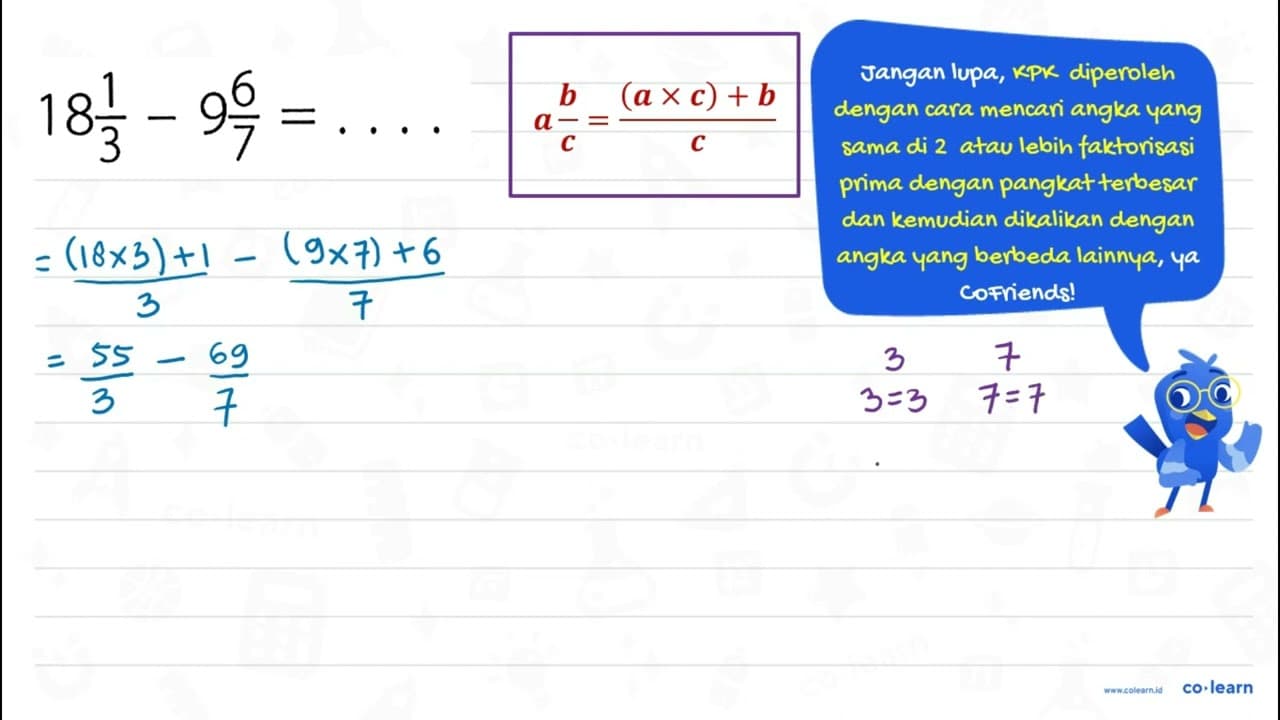 18 1/3 − 9 6/7 = . . . .
a b/c = (a × c) + b / c
Jangan lupa, KPK diperoleh
dengan cara mencari angka yang
sama di 2 atau lebih faktorisasi
prima dengan pangkat terbesar
dan kemudian dikalikan dengan
angka yang berbeda lainnya, ya
CoFriends!
= (18×3)+1 / 3 − (9×7)+6 / 7
= 55/3 − 69/7
3 7
3=3 7=7
co·learn
co·learn
www.colearn.id co·learn